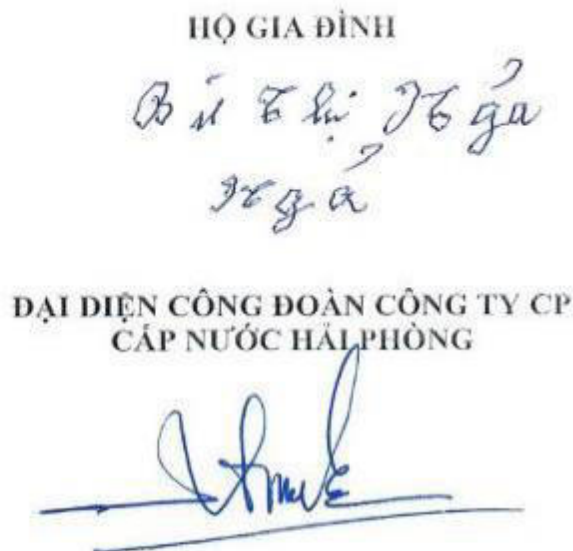 HỘ GIA ĐÌNH
Bùi Thị Ngả
Ngả
ĐẠI DIỆN CÔNG ĐOÀN CÔNG TY CP
CẤP NƯỚC HẢI PHÒNG